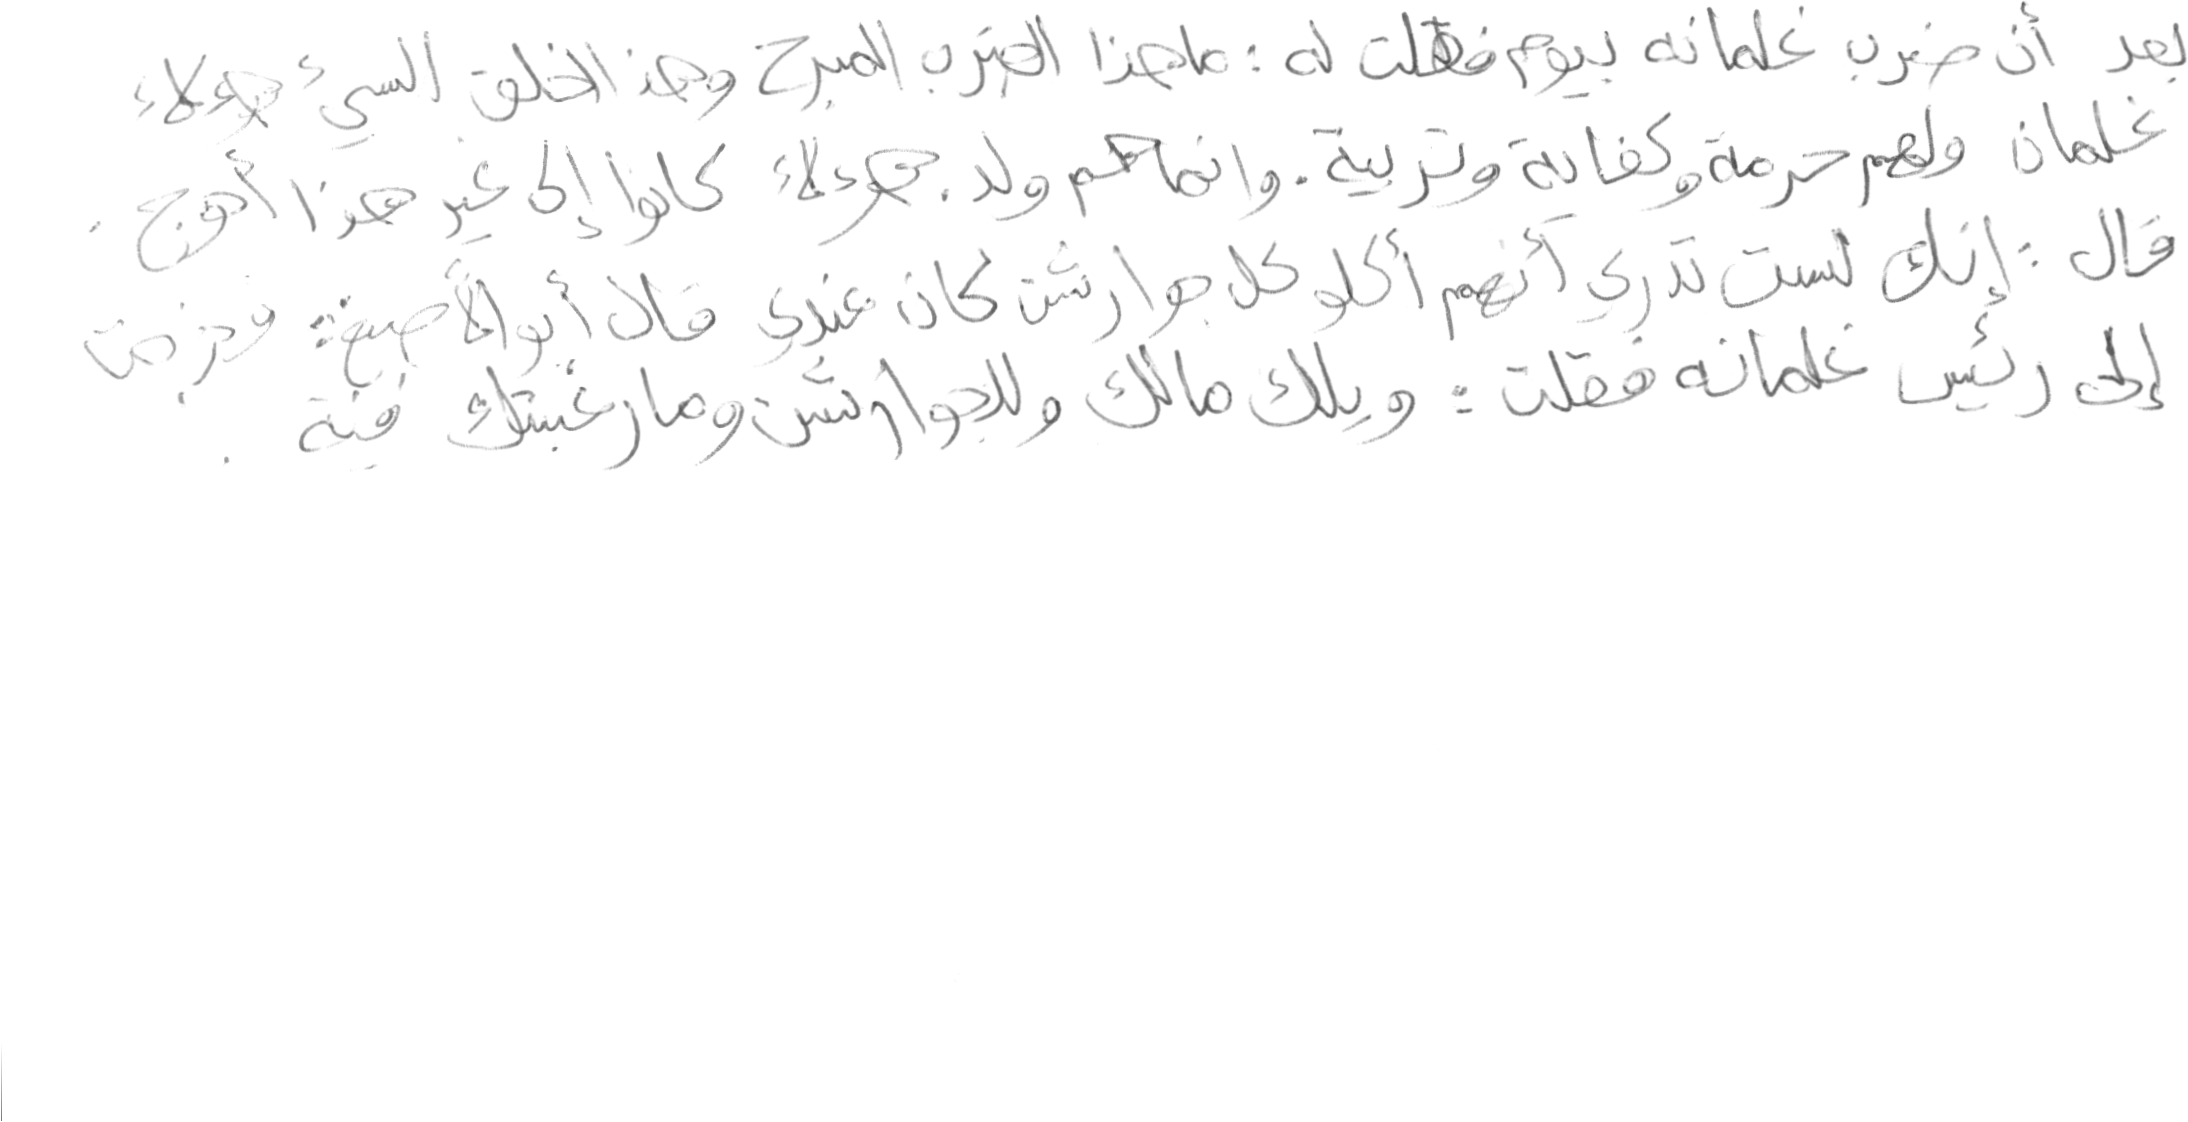 بعد أن ضرب غلمانه بيوم فقلت له : ما هذا الضرب المبرح وهذا الخلق السيئ هؤلاء
غلمان ولهم حرمة وكفاية وتربية . وانما هم ولد . هؤلاء كانوا إلى غير هذا أحوج .
قال : إنك لست تدري أنهم أكلو كل جوارشن كان عندي قال أبو الأصبغ : فخرجت
إلى رئيس غلمانه فقلت : ويلك مالك وللجوارشن وما رغبتك فيه .